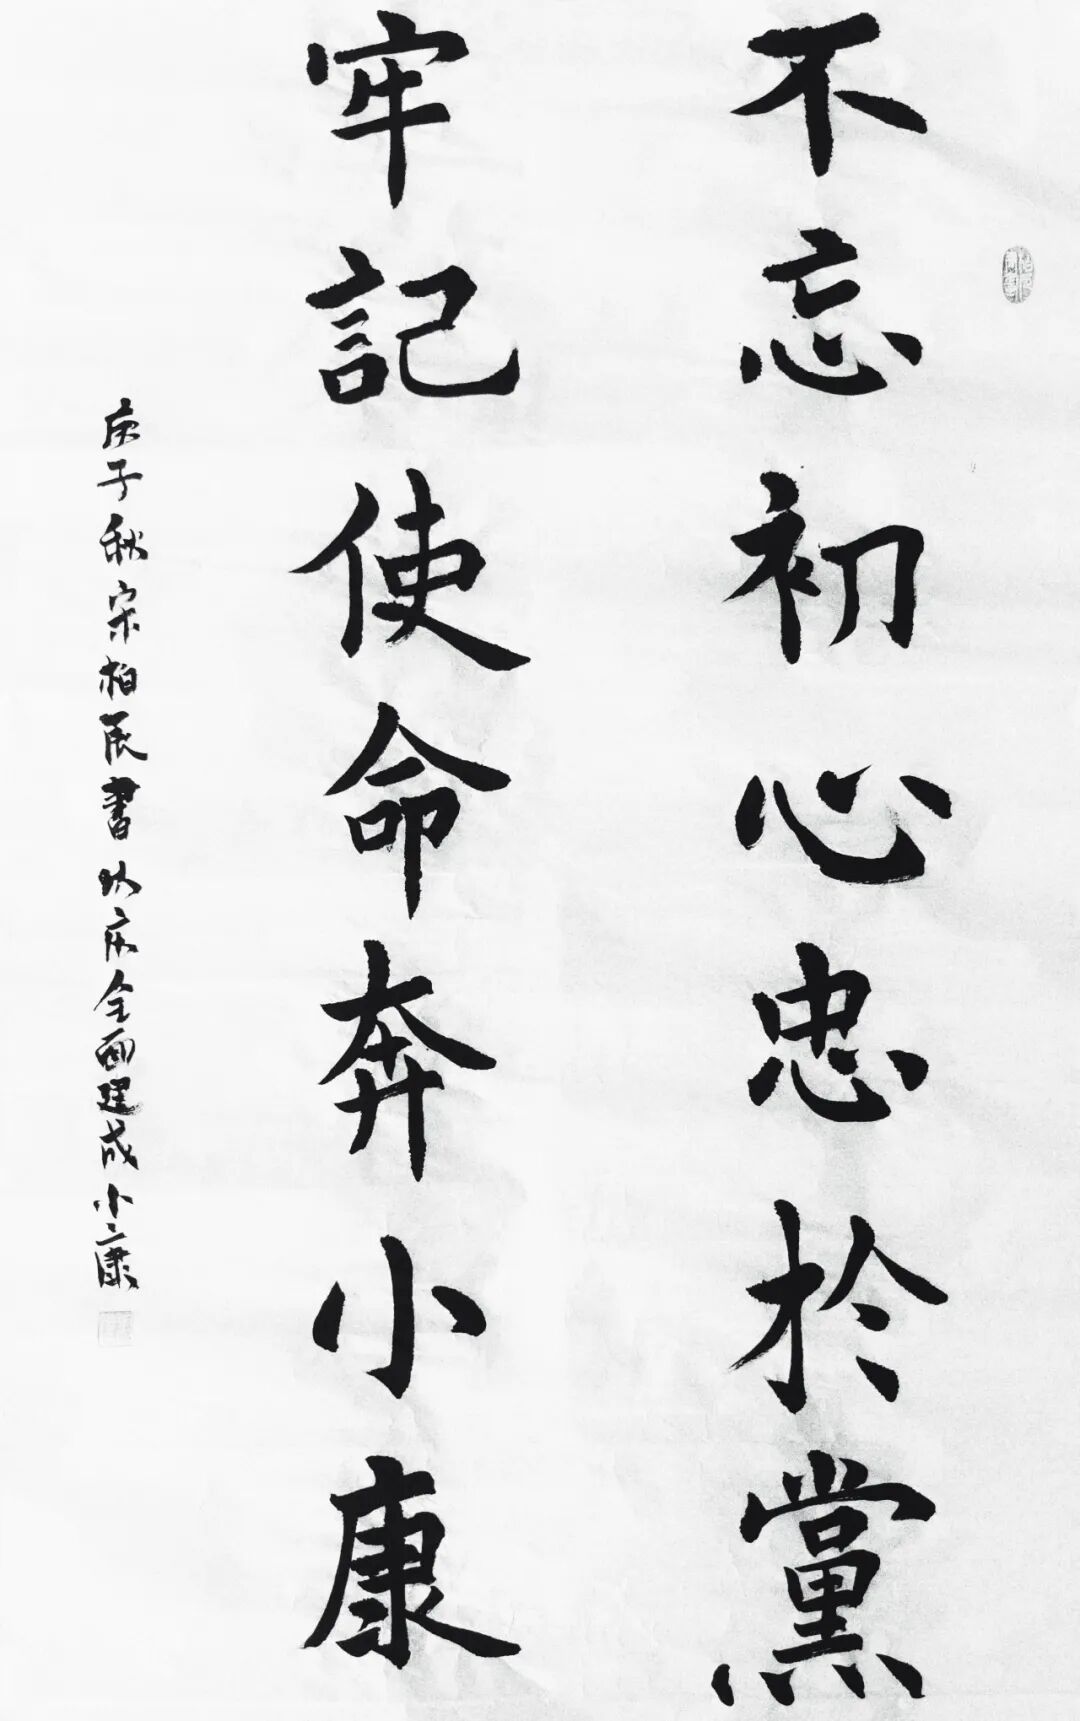 不忘初心忠於黨
牢記使命奔小康
庚子秋宗柏民書以庆全面建成小康